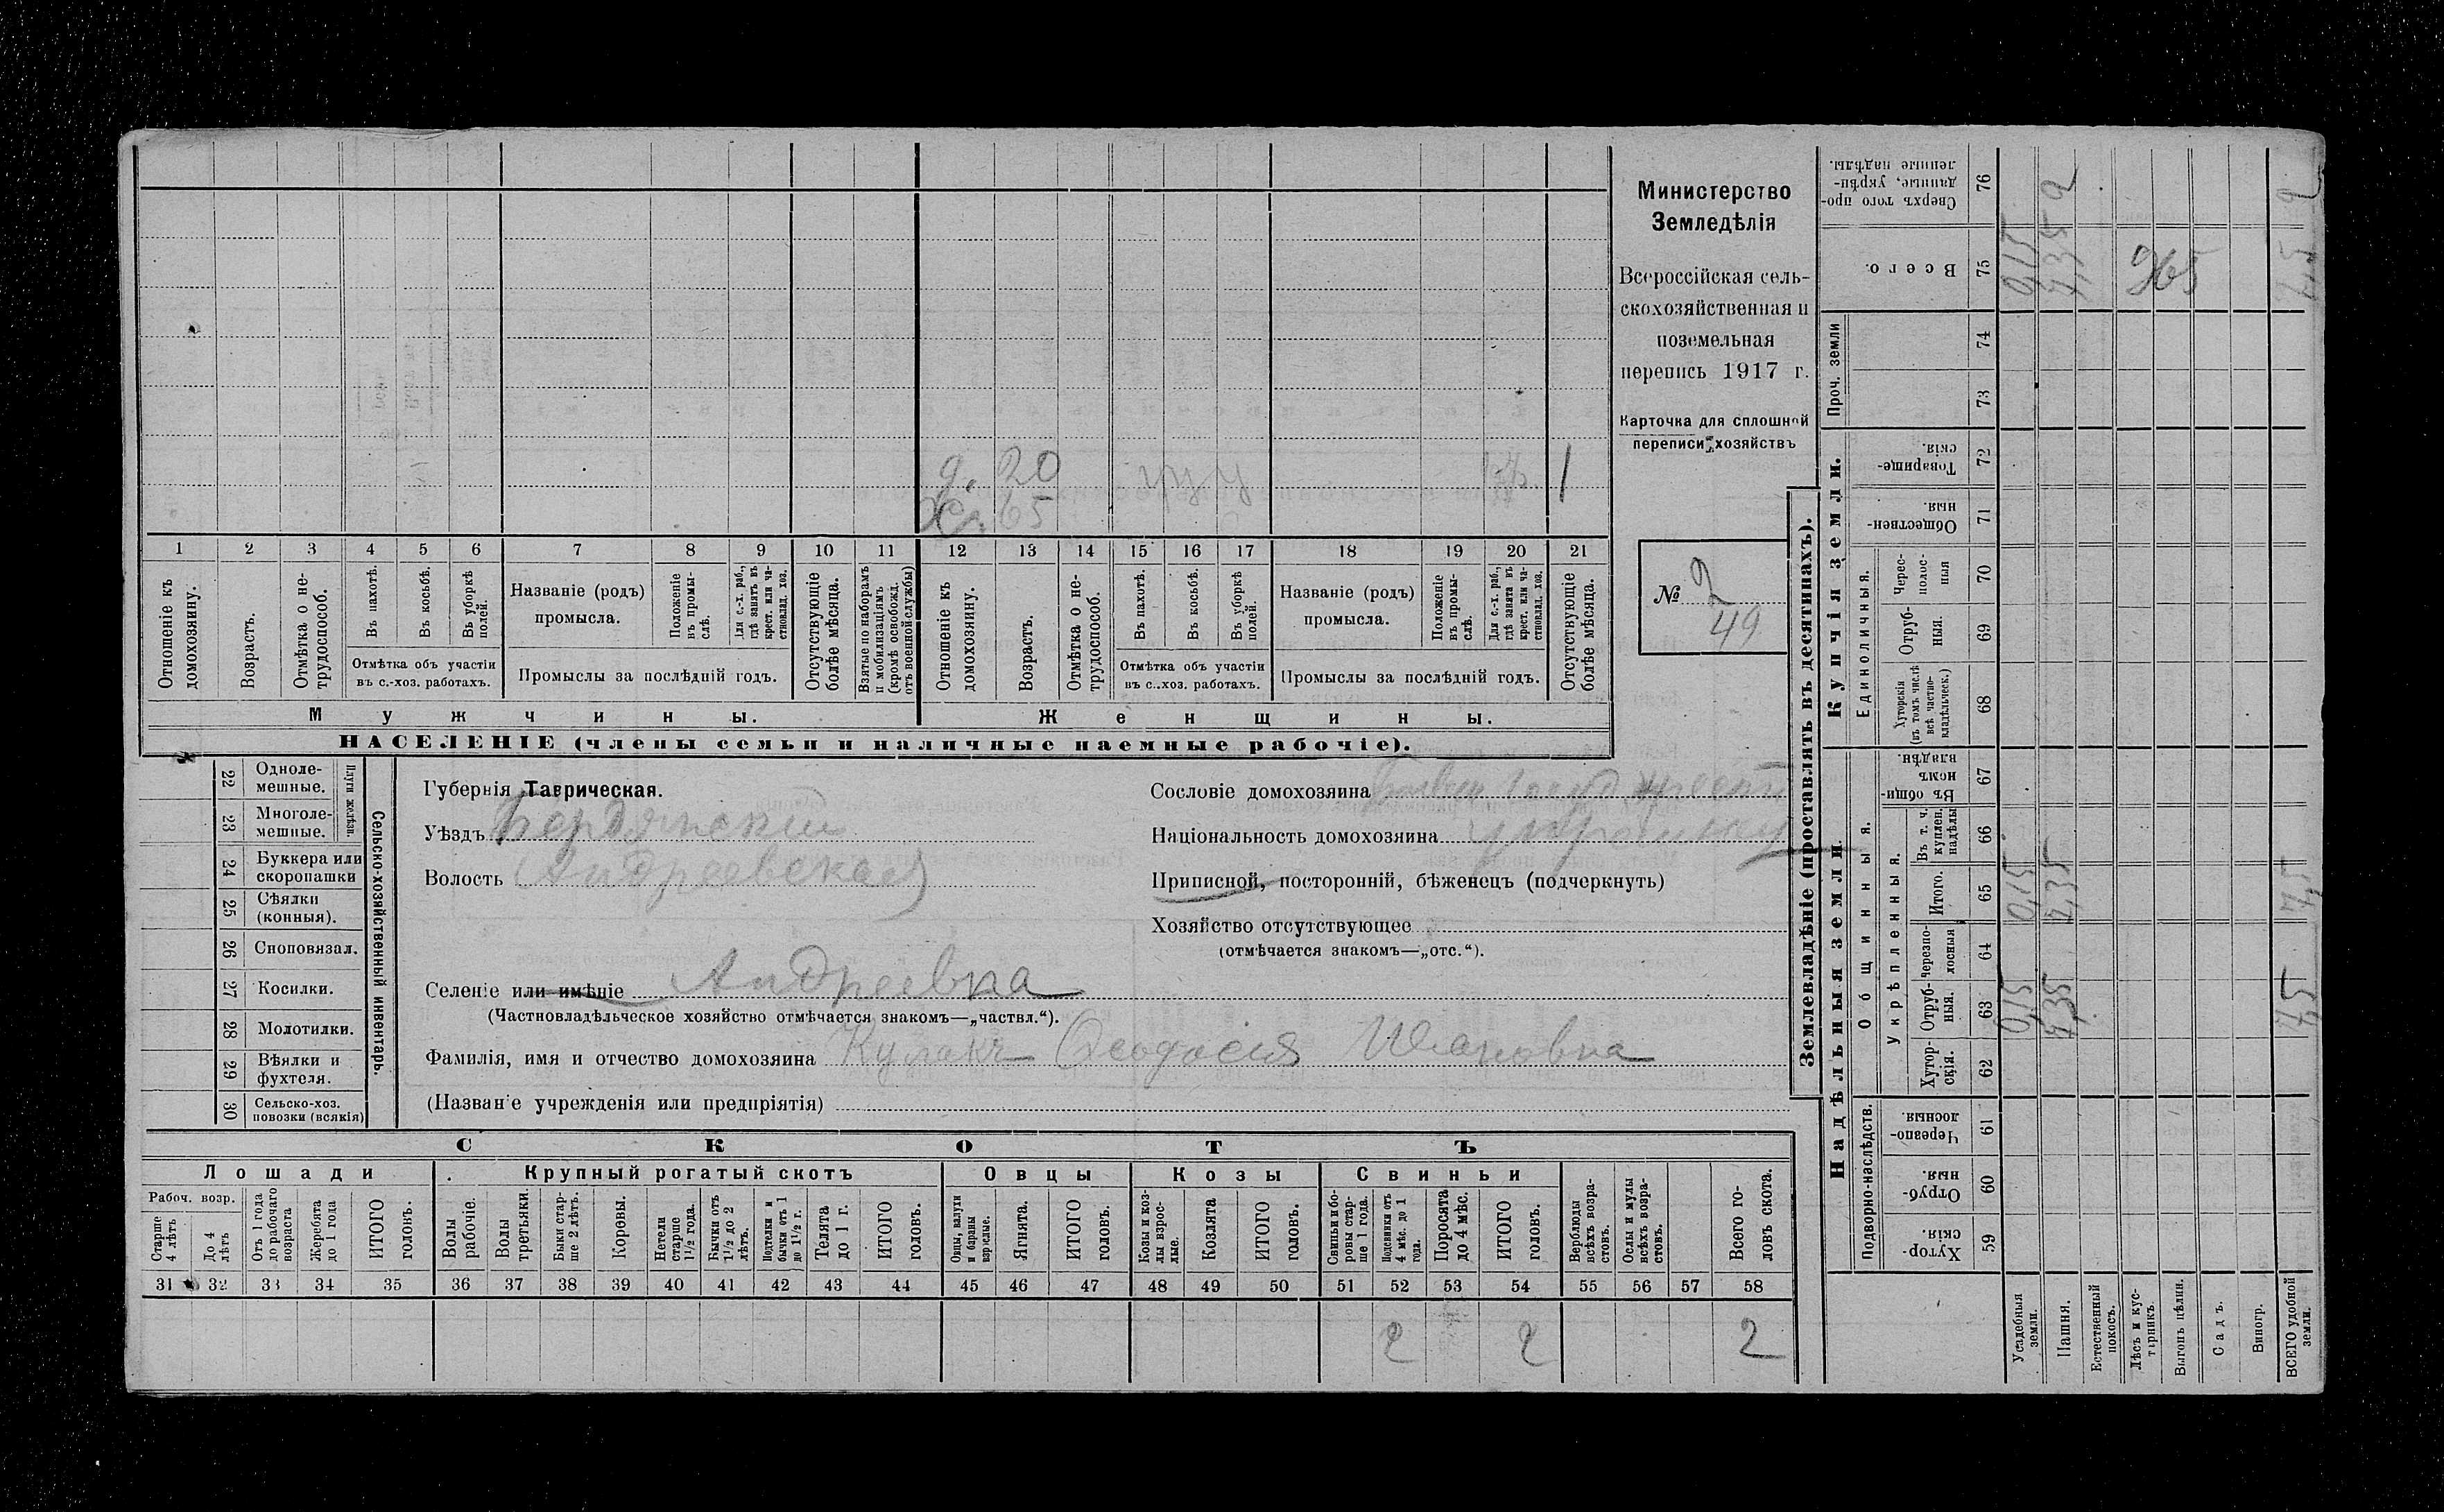 Министерство
Земледѣлія
Всероссійская сель-
скохозяйственная и
поземельная
перепись 1917 г.
Карточка для сплошной
переписи хозяйствъ
№ 2
49
д. 20
Х. 65
1
1 2 3 4 5 6 7 8 9 10 11 12 13 14 15 16 17 18 19 20 21
Отношеніе къ домохозяину.
Возрастъ.
Отмѣтка о не-трудоспособ.
Въ пахотѣ.
Въ косьбѣ.
Въ уборкѣ полей.
Отмѣтка объ участіи
въ с.-хоз. работахъ.
Названіе (родъ)
промысла.
Положеніе въ промы-слѣ.
Для с.-х. раб., гдѣ занятъ въ крест. или ча-стновлад. хоз.
Промыслы за послѣдній годъ.
Отсутствующіе болѣе мѣсяца.
Взятые по наборамъ и мобилизаціямъ (кромѣ освобожд. отъ военной службы)
Отношеніе къ домохозяину.
Возрастъ.
Отмѣтка о не-трудоспособ.
Въ пахотѣ.
Въ косьбѣ.
Въ уборкѣ полей.
Отмѣтка объ участіи
въ с.-хоз. работахъ.
Названіе (родъ)
промысла.
Положеніе въ промы-слѣ.
Для с.-х. раб., гдѣ занята въ крест. или ча-стновлад. хоз.
Промыслы за послѣдній годъ.
Отсутствующіе болѣе мѣсяца.
Мужчины. Женщины.
НАСЕЛЕНІЕ (члены семьи и наличные наемные рабочіе).
Сельско-хозяйственный инвентарь.
Плуги желѣзн.
22 Одноле-мешные.
23 Многоле-мешные.
24 Буккера или скоропашки
25 Сѣялки (конныя).
26 Сноповязал.
27 Косилки.
28 Молотилки.
29 Вѣялки и фухтеля.
30 Сельско-хоз. повозки (всякія)
Губернія Таврическая.
Уѣздъ Бердянскій
Волость Андреевская
Селеніе или имѣніе Андреевка
(Частновладѣльческое хозяйство отмѣчается знакомъ—„частвл.“).
Фамилія, имя и отчество домохозяина Кулакъ Феодосія Ивановна
(Названіе учрежденія или предпріятія)
Сословіе домохозяина бывш госуд. крест
Національность домохозяина
Приписной, посторонній, бѣженецъ (подчеркнуть)
Хозяйство отсутствующее
(отмѣчается знакомъ—„отс.“).
СКОТЪ
Лошади Крупный рогатый скотъ Овцы Козы Свиньи
Рабоч. возр.
Старше 4 лѣтъ
До 4 лѣтъ
Отъ 1 года до рабочаго возраста
Жеребята до 1 года
ИТОГО головъ.
Волы рабочіе.
Волы третьяки.
Быки стар-ше 2 лѣтъ.
Коровы.
Нетели старше 1½ года.
Бычки отъ 1½ до 2 лѣтъ.
Подтелки и бычки отъ 1 до 1½ г.
Телята до 1 г.
ИТОГО головъ.
Овцы, валухи и бараны взрослые.
Ягнята.
ИТОГО головъ.
Козы и коз-лы взрос-лые.
Козлята
ИТОГО головъ.
Свиньи и бо-ровы стар-ше 1 года.
Подсвинки отъ 4 мѣс. до 1 года.
Поросята до 4 мѣс.
ИТОГО головъ.
Верблюды всѣхъ возра-стовъ.
Ослы и мулы всѣхъ возра-стовъ.
Всего го-ловъ скота.
31 32 33 34 35 36 37 38 39 40 41 42 43 44 45 46 47 48 49 50 51 52 53 54 55 56 57 58
2 2 2
Землевладѣніе (проставлять въ десятинахъ).
Надѣльныя земли.
Купчія земли.
Проч. земли
Подворно-наслѣдств.
Общинныя.
Укрѣпленныя.
Единоличныя.
Хутор-скія. 59
Отруб-ныя. 60
Черезпо-лосныя. 61
Хутор-скія. 62
Отруб-ныя. 63
Черезпо-лосныя 64
Итого. 65
Въ т. ч. куплен. надѣлы 66
Въ общи-номъ владѣн. 67
Хуторскія (въ томъ числѣ всѣ частно-владѣльческ.) 68
Отруб-ныя. 69
Черес-полос-ныя 70
Обществен-ныя. 71
Товарище-скія. 72
73
74
Всего. 75
Сверхъ того про-данные, укрѣп-ленные надѣлы. 76
Усадебныя земли. 0,15 0,15 0,15
Пашня. 7,35 7,35 7,35 2
Естественный покосъ.
Лѣсъ и кус-тарникъ.
Выгонъ цѣлин.
Садъ.
Виногр.
ВСЕГО удобной земли. 7,5 7,5 7,5 2
265